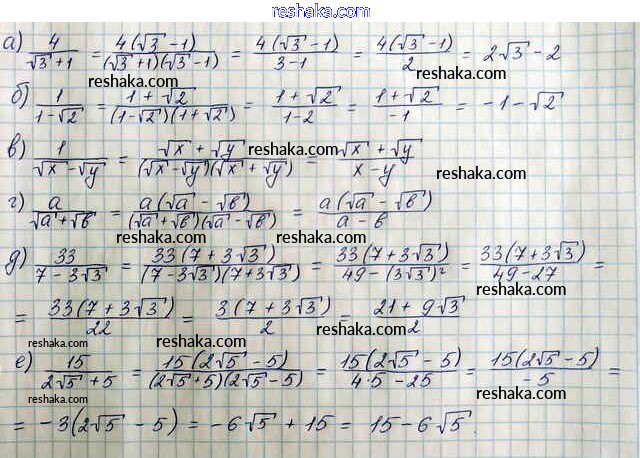 reshaka.com
а) 4/(√3 + 1) = 4(√3 - 1)/((√3 + 1)(√3 - 1)) = 4(√3 - 1)/(3 - 1) = 4(√3 - 1)/2 = 2√3 - 2
reshaka.com
reshaka.com
б) 1/(1 - √2) = (1 + √2)/((1 - √2)(1 + √2)) = (1 + √2)/(1 - 2) = (1 + √2)/(-1) = -1 - √2
reshaka.com
reshaka.com
в) 1/(√x - √y) = (√x + √y)/((√x - √y)(√x + √y)) = (√x + √y)/(x - y)
reshaka.com
reshaka.com
г) a/(√a + √b) = a(√a - √b)/((√a + √b)(√a - √b)) = a(√a - √b)/(a - b)
reshaka.com
reshaka.com
д) 33/(7 - 3√3) = 33(7 + 3√3)/((7 - 3√3)(7 + 3√3)) = 33(7 + 3√3)/(49 - (3√3)²) = 33(7 + 3√3)/(49 - 27) =
reshaka.com
= 33(7 + 3√3)/22 = 3(7 + 3√3)/2 = (21 + 9√3)/2
reshaka.com
reshaka.com
е) 15/(2√5 + 5) = 15(2√5 - 5)/((2√5 + 5)(2√5 - 5)) = 15(2√5 - 5)/(4·5 - 25) = 15(2√5 - 5)/(-5) =
reshaka.com
reshaka.com
reshaka.com
= -3(2√5 - 5) = -6√5 + 15 = 15 - 6√5.
reshaka.com
reshaka.com